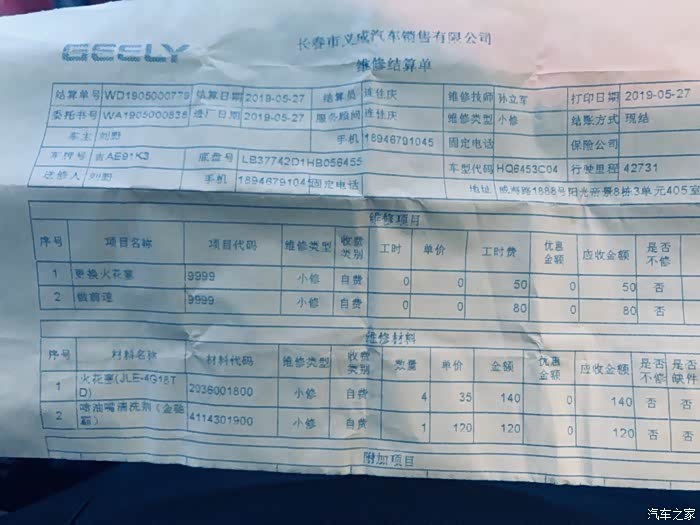 GEELY
长春市义成汽车销售有限公司
维修结算单
结算单号 WD1905000779 结算日期 2019-05-27 结算员 连佳庆 维修技师 孙立军 打印日期 2019-05-27
委托书号 WA1905000838 进厂日期 2019-05-27 服务顾问 连佳庆 维修类型 小修 结账方式 现结
车主 刘 手机 18946791045 固定电话 保险公司
车牌号 吉AE91K3 底盘号 LB37742D1HB056455 车型代码 HQ6453C04 行驶里程 42731
送修人 刘 手机 1894679104 固定电话 地址 威海路1888号阳光新景8栋3单元405室
维修项目
序号 项目名称 项目代码 维修类型 收费类别 工时 单价 工时费 优惠金额 应收金额 是否不修
1 更换火花塞 9999 小修 自费 0 0 50 0 50 否
2 做前速 9999 小修 自费 0 0 80 0 80 否
维修材料
序号 材料名称 材料代码 维修类型 收费类别 数量 单价 金额 优惠金额 应收金额 是否不修 是否缺件
1 火花塞(JLE-4G18TD) 2036001800 小修 自费 4 35 140 0 140 否 否
2 喷油嘴清洗剂(金 4114301900 小修 自费 1 120 120 0 120 否 否
附加项目
汽车之家